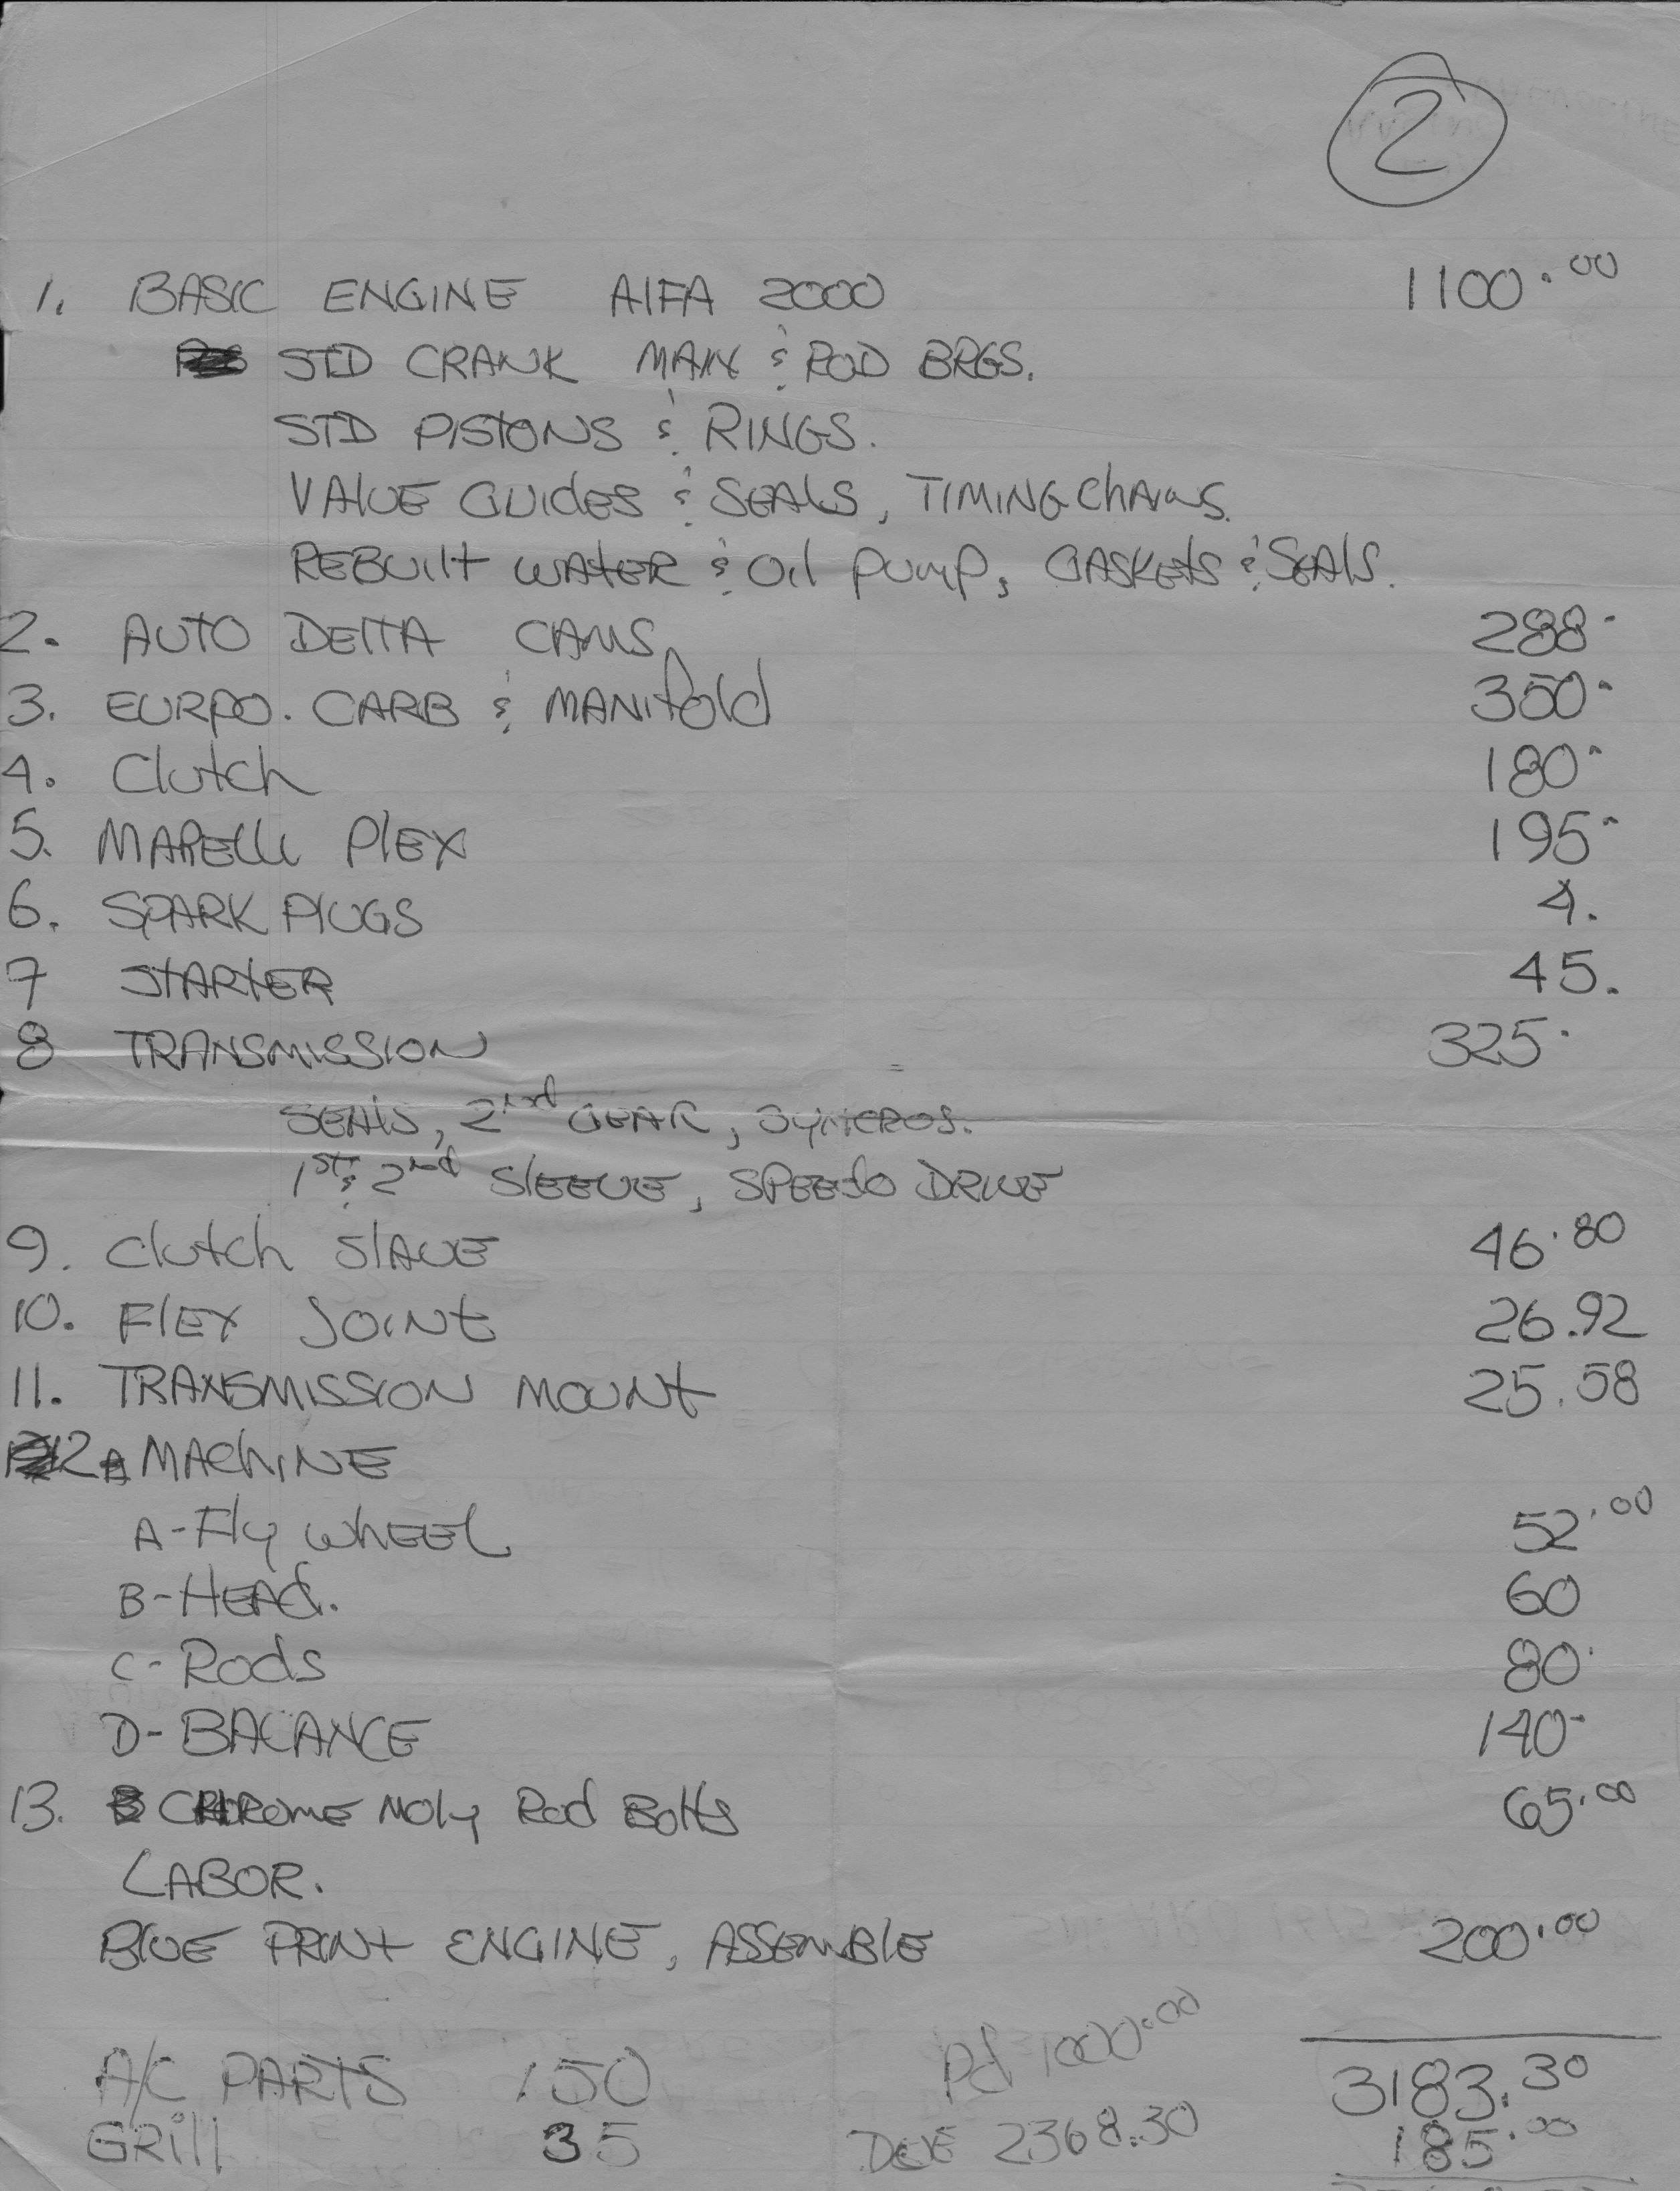 2
1. BASIC ENGINE AlFA 2000 1100.00
STD CRANK MAIN & ROD BRGS.
STD PIStONS & RINGS.
VALUE GUIdES & SEAlS, TIMING ChAINS.
REBUIlt WATER & OIl PUMP, GASKEtS & SEAlS.
2. AUTO DElTA CAMS 288.
3. EURPO. CARB & MANIfold 350.
4. Clutch 180.
5. MARElli PlEX 195.
6. SPARK PlUGS 4.
7 STARtER 45.
8 TRANSMISSION 325.
SEAlS, 2nd GEAR, SYNCROS.
1st & 2nd SlEEVE, SPEEdO DRIVE
9. Clutch SlAVE 46.80
10. FlEX JOINt 26.92
11. TRANSMISSION MOUNt 25.58
12 A MAChINE
A-Fly WhEEL 52.00
B-HEAd. 60
C-Rods 80.
D-BALANCE 140-
13. CHROME MOly Rod Bolts 65.00
LABOR.
BlUE PRINt ENGINE, ASSEMBlE 200.00
Pd 1000.00
A/C PARTS 150 3183.30
GRill 35 DUE 2368.30 185.00